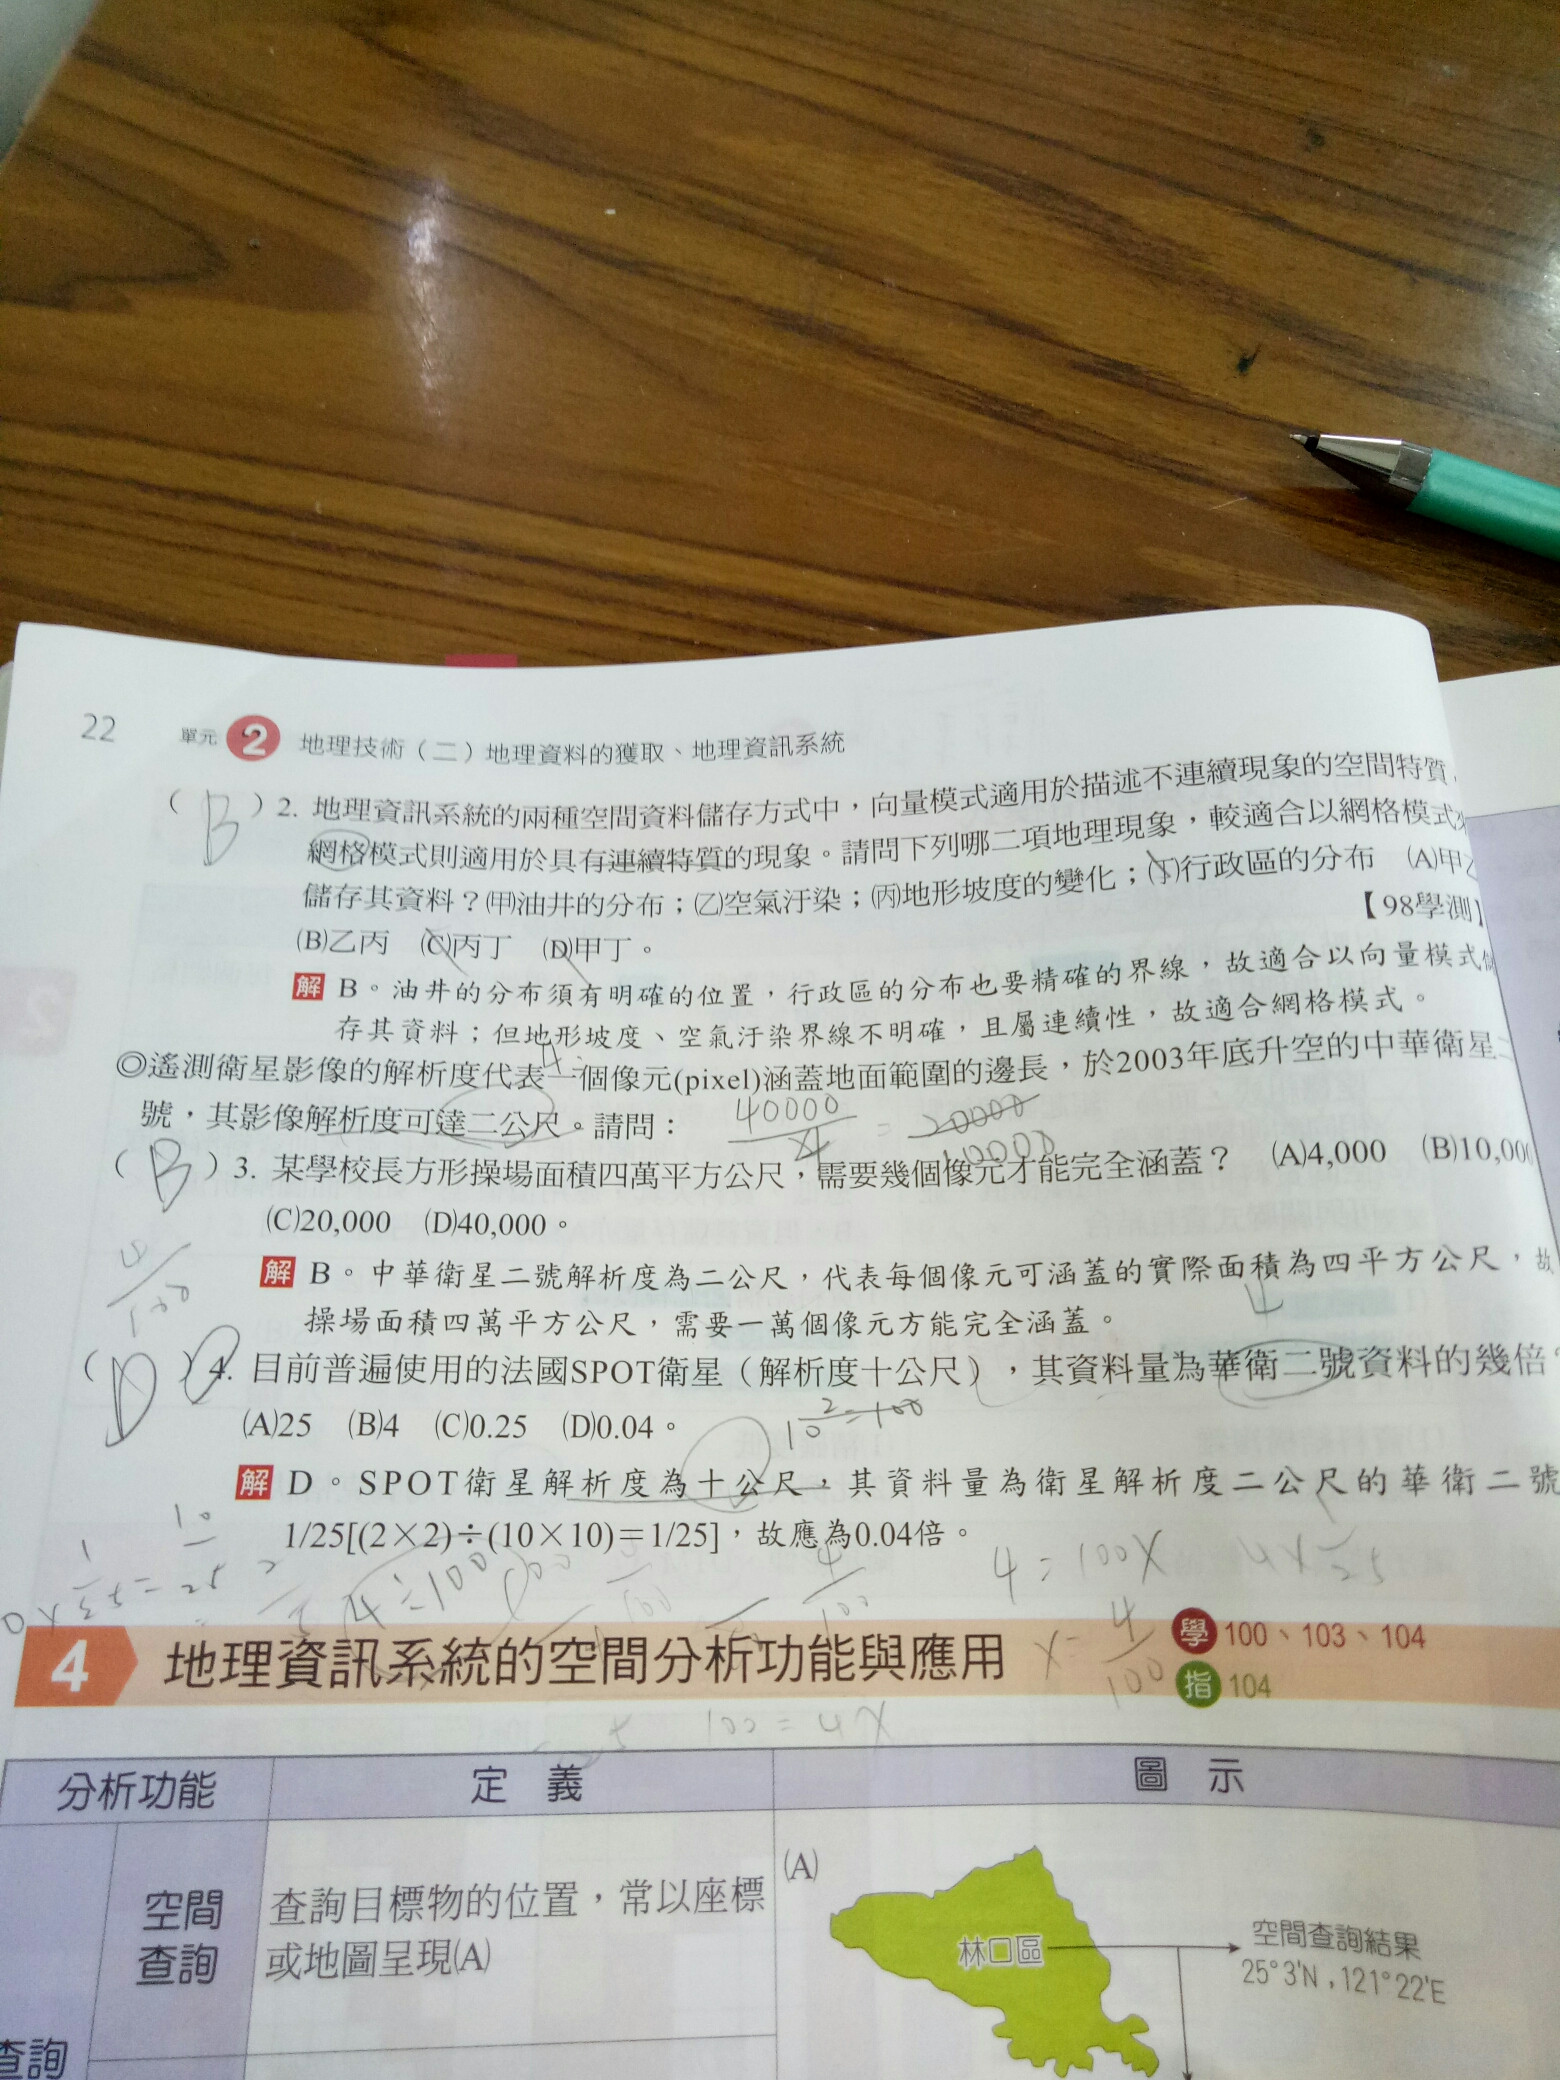 22 單元 2 地理技術（二）地理資料的獲取、地理資訊系統
( B ) 2. 地理資訊系統的兩種空間資料儲存方式中，向量模式適用於描述不連續現象的空間特質，
網格模式則適用於具有連續特質的現象。請問下列哪二項地理現象，較適合以網格模式
儲存其資料？(甲)油井的分布；(乙)空氣汙染；(丙)地形坡度的變化；(丁)行政區的分布 (A)甲乙
(B)乙丙 (C)丙丁 (D)甲丁。 【98學測】
解 B。油井的分布須有明確的位置，行政區的分布也要精確的界線，故適合以向量模式儲
存其資料；但地形坡度、空氣汙染界線不明確，且屬連續性，故適合網格模式。
◎遙測衛星影像的解析度代表一個像元(pixel)涵蓋地面範圍的邊長，於2003年底升空的中華衛星二
號，其影像解析度可達二公尺。請問：
40000/4 = 20000
10000
( B ) 3. 某學校長方形操場面積四萬平方公尺，需要幾個像元才能完全涵蓋？ (A)4,000 (B)10,000
(C)20,000 (D)40,000。
4/100
解 B。中華衛星二號解析度為二公尺，代表每個像元可涵蓋的實際面積為四平方公尺，故
操場面積四萬平方公尺，需要一萬個像元方能完全涵蓋。
4
( D ) 4. 目前普遍使用的法國SPOT衛星（解析度十公尺），其資料量為華衛二號資料的幾倍？
(A)25 (B)4 (C)0.25 (D)0.04。
10²=100
解 D。SPOT衛星解析度為十公尺，其資料量為衛星解析度二公尺的華衛二號
1/25[(2×2)÷(10×10)＝1/25]，故應為0.04倍。
4÷100
4/100
4=100X
4×1/25
4 地理資訊系統的空間分析功能與應用 學 100、103、104
指 104
X=4/100
100=4X
分析功能 定 義 圖 示
查詢
空間
查詢
查詢目標物的位置，常以座標
或地圖呈現(A)
(A)
林口區
空間查詢結果
25°3'N，121°22'E